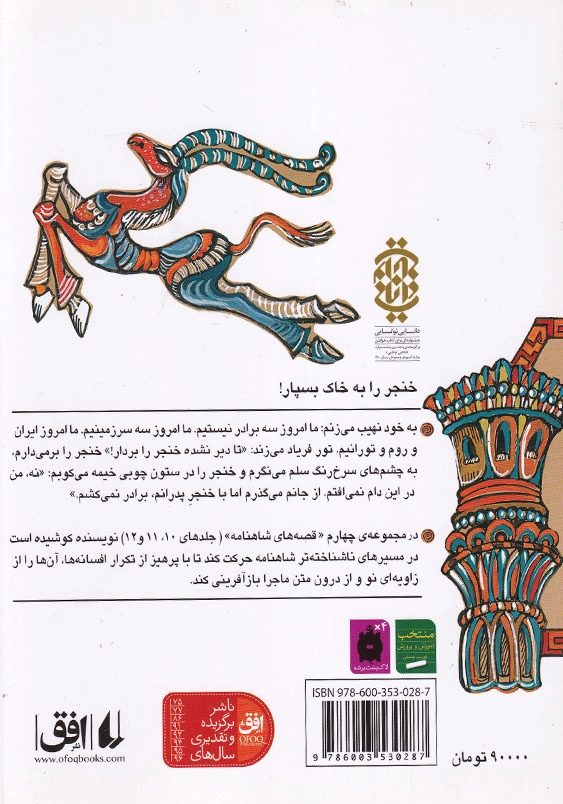 دانایی توانایی
خنجر را به خاک بسپار!
به خود نهیب می‌زنم: ما امروز سه برادر نیستیم. ما امروز سه سرزمینیم. ما امروز ایران
و روم و تورانیم. تور فریاد می‌زند: «تا دیر نشده خنجر را بردار!» خنجر را برمی‌دارم،
به چشم‌های سرخ‌رنگ سلم می‌نگرم و خنجر را در ستون چوبی خیمه می‌کوبم: «نه، من
در این دام نمی‌افتم. از جانم می‌گذرم اما با خنجرِ پدرانم، برادر نمی‌کشم.»
در مجموعه‌ی چهارم «قصه‌های شاهنامه» (جلدهای ۱۰، ۱۱ و ۱۲) نویسنده کوشیده است
در مسیرهای ناشناخته‌تر شاهنامه حرکت کند تا با پرهیز از تکرار افسانه‌ها، آن‌ها را از
زاویه‌ای نو و از درون متن ماجرا بازآفرینی کند.
۴×
لاک‌پشت پرنده
منتخب
آموزش و پرورش
ISBN 978-600-353-028-7
9 786003 530287
۹۰۰۰۰ تومان
ناشر
برگزیده
و تقدیری
سال‌های
۷۵
۷۷
۸۶
۹۱
۹۲
۹۴
۹۵
۹۶
افق
OFOQ
نشر افق
www.ofoqbooks.com